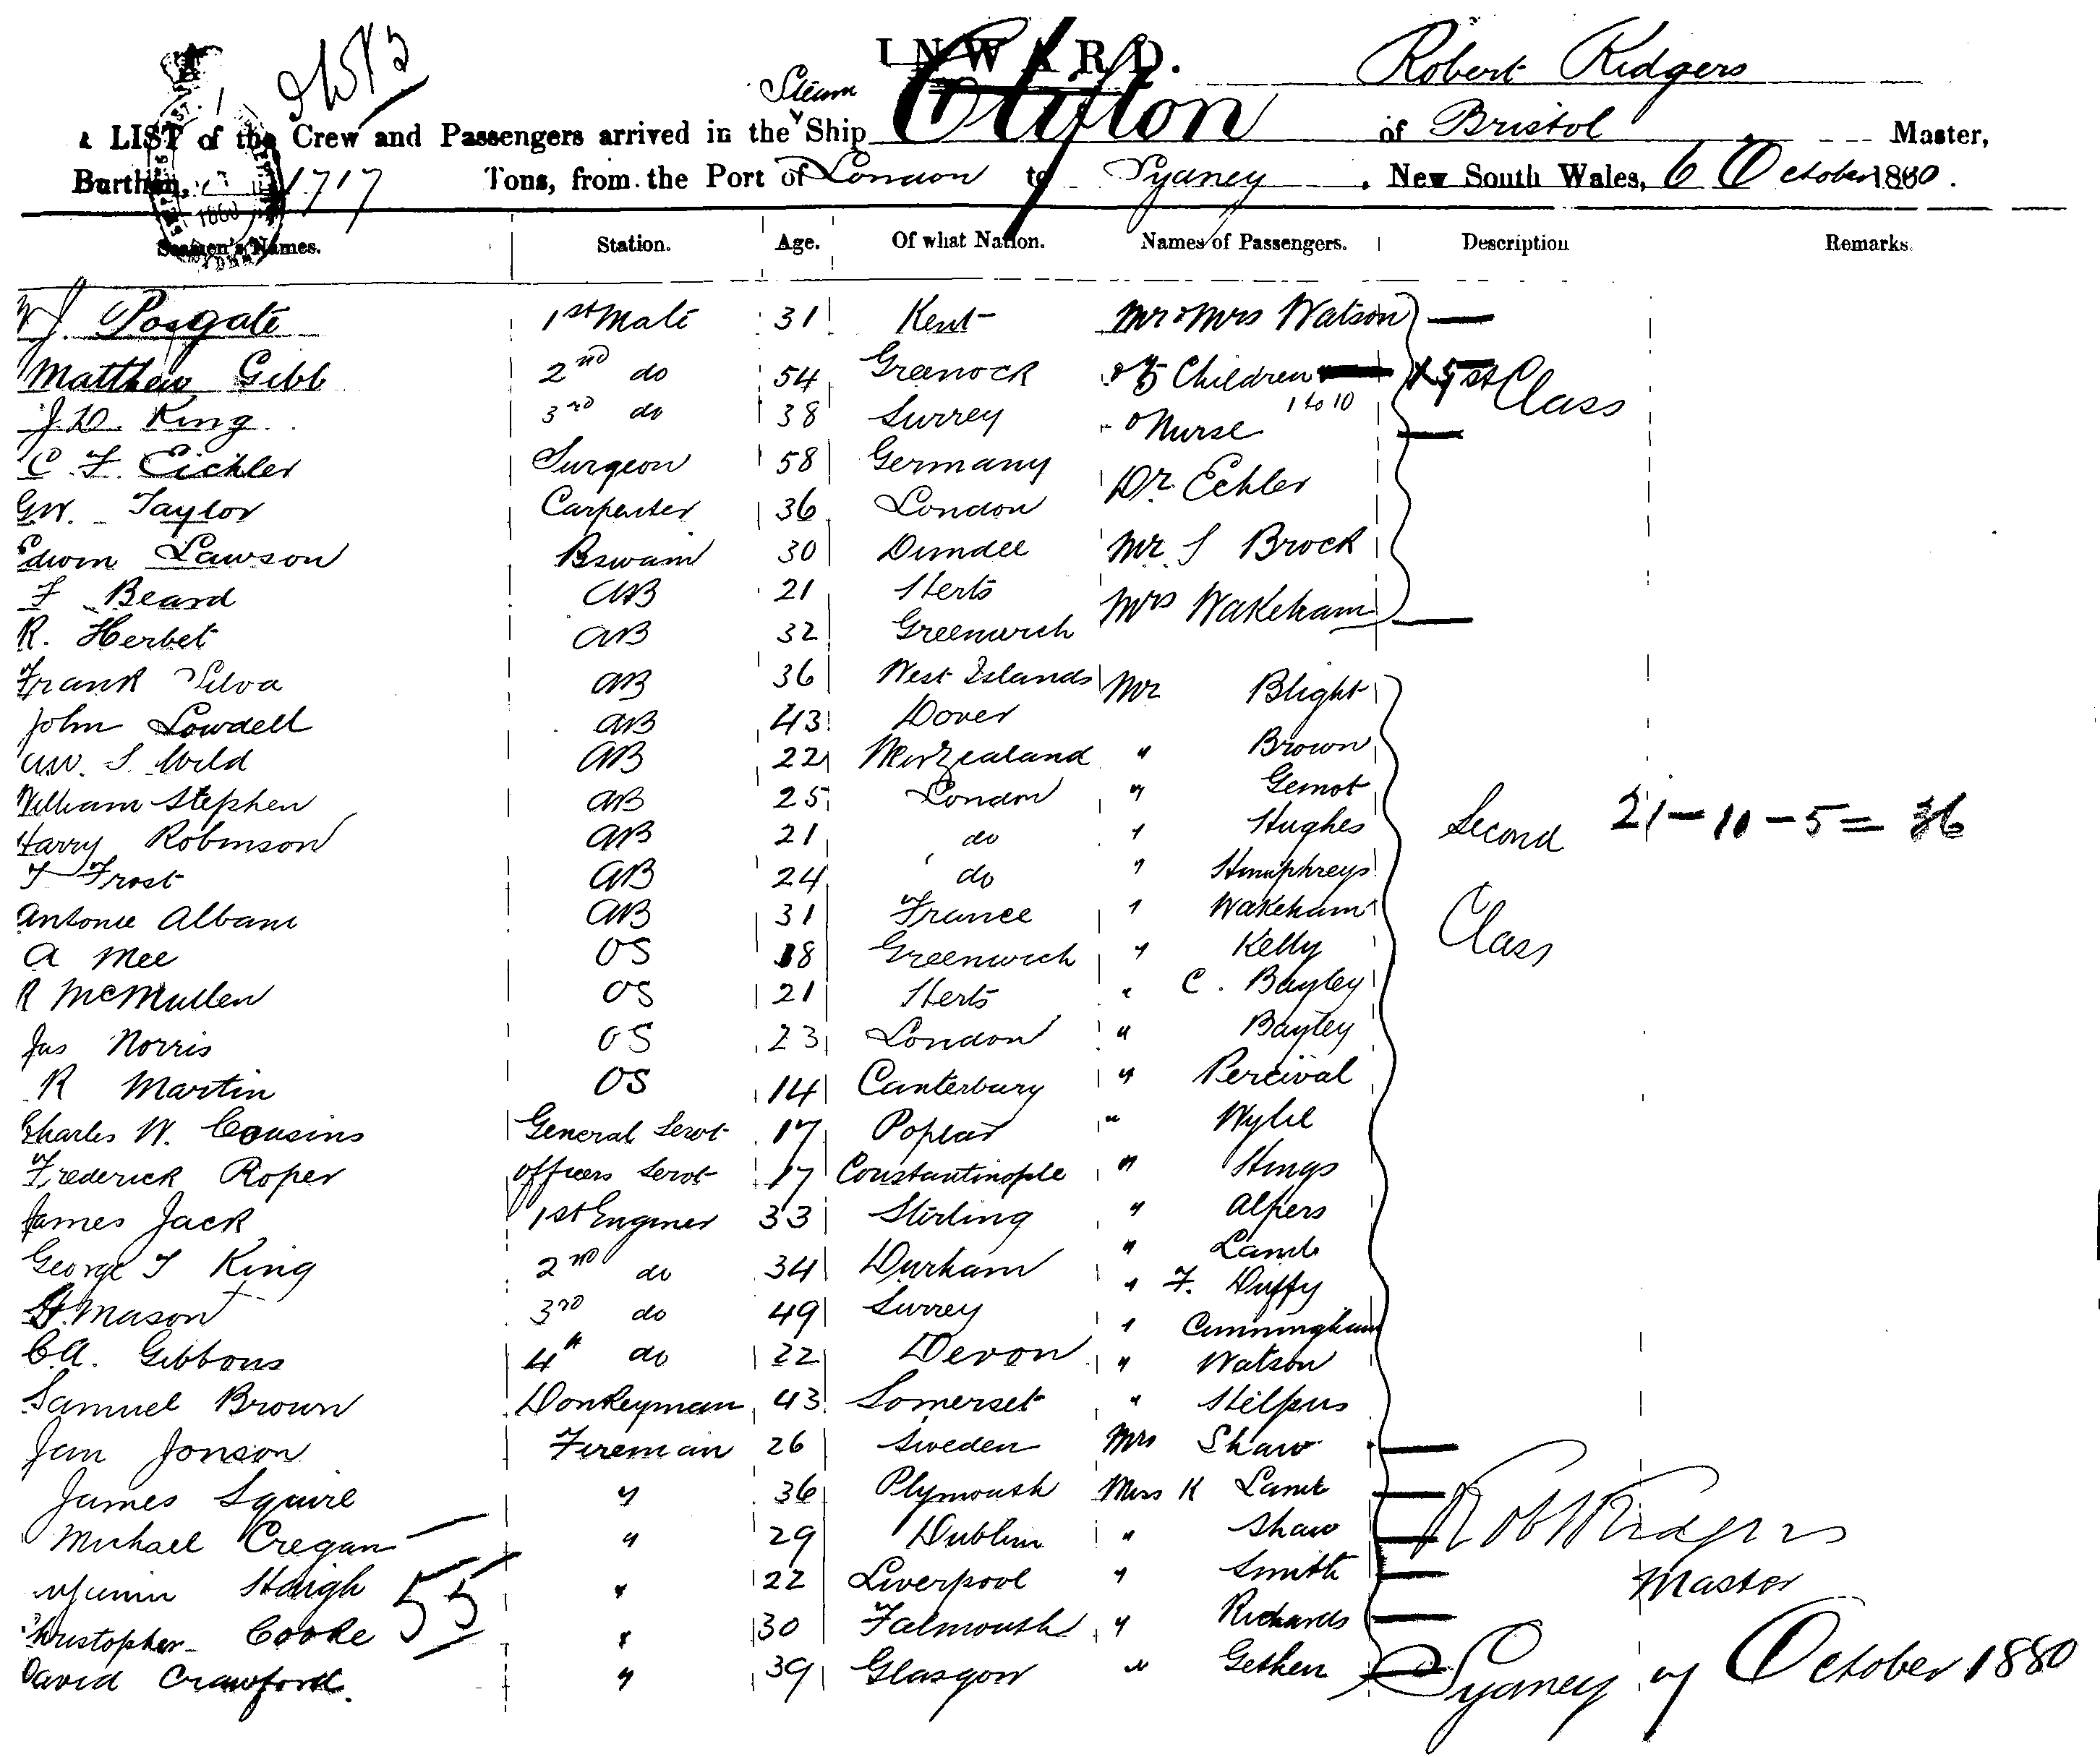 INWARD.
Robert Ridgers
Steam
A LIST of the Crew and Passengers arrived in the Ship Clifton of Bristol Master,
Burthen, 1717 Tons, from the Port of London to Sydney, New South Wales, 6 October 1880.
Seamen's Names. Station. Age. Of what Nation. Names of Passengers. Description Remarks.
J. Posgate 1st Mate 31 Kent Mr & Mrs Watson
Matthew Gibb 2nd do 54 Greenock & 5 Children 1st Class
1 to 10
J.D. King 3rd do 38 Surrey & Nurse
C. F. Eichler Surgeon 58 Germany Dr. Echler
GW. Taylor Carpenter 36 London
Edwin Lawson Bswain 30 Dundee Mr S Brock
F Beard AB 21 Herts Mrs Wakeham
R. Herbet AB 32 Greenwich
Frank Silva AB 36 West Islands Mr Blight
John Lowdell AB 43 Dover
S. Wild AB 22 New Zealand " Brown
William Stephen AB 25 London " Gemot
Harry Robinson AB 21 do " Hughes Second 21-10-5=36
T Frost AB 24 do " Humphreys
Antonie Albani AB 31 France " Wakeham Class
A Mee OS 18 Greenwich " Kelly
R McMullen OS 21 Herts " C. Bayley
Jas Norris OS 23 London " Bayley
R Martin OS 14 Canterbury " Percival
Charles W. Cousins General Servt 17 Poplar " Wylie
Frederick Roper Officers Servt 17 Constantinople " Hings
James Jack 1st Enginer 33 Stirling " Alpers
George T King 2nd do 34 Durham " Lamb
H. Mason 3rd do 49 Surrey " F. Duffy
" Cunningham
C.A. Gibbons 4th do 22 Devon " Watson
Samuel Brown Donkeyman 43 Somerset " Stilpus
Jan Jonson Fireman 26 Sweden Mrs Shaw
James Squire " 36 Plymouth Miss K Lamb
Michael Cregan " 29 Dublin " Shaw Robt Ridgers
Haigh " 22 Liverpool " Smith Master
55
Christopher Cooke " 30 Falmouth " Richards
David Crawford. " 39 Glasgow " Gethen Sydney 7 October 1880